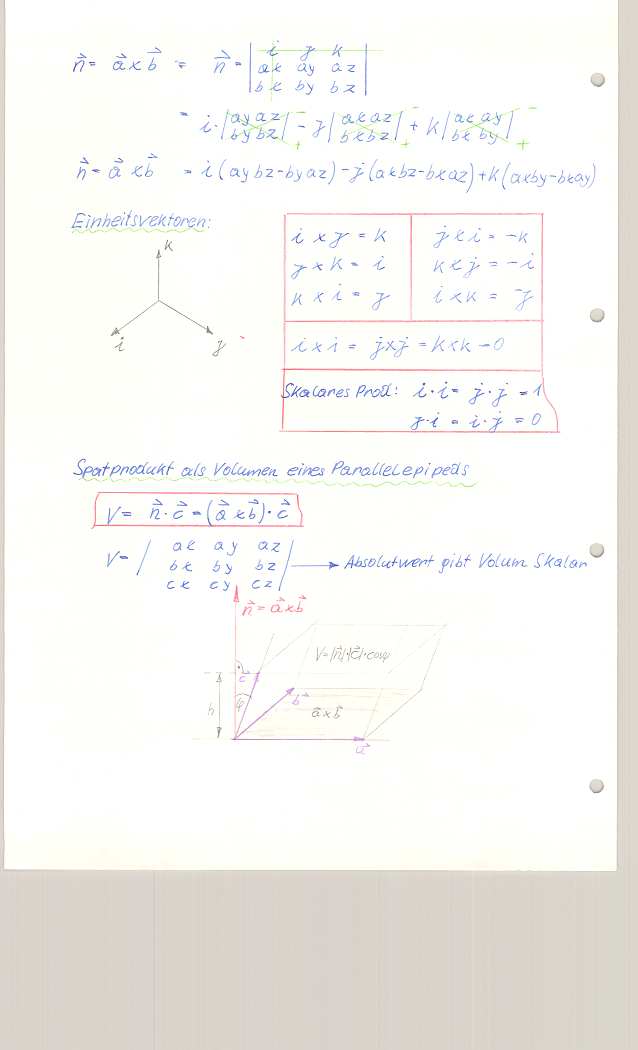 n⃗ = a⃗ x b⃗ = n⃗ = | i j k |
| ax ay az |
| bx by bz |
= i·|ay az| - j|ax az| + k|ax ay|
|by bz| |bx bz| |bx by|
- - -
+ + +
n⃗ = a⃗ x b⃗ = i(aybz-byaz)-j(axbz-bxaz)+k(axby-bxay)
Einheitsvektoren:
k
i
j
i x j = k j x i = -k
j x k = i k x j = -i
k x i = j i x k = -j
i x i = j x j = k x k = 0
Skalares Prod: i·i = j·j = 1
j·i = i·j = 0
Spatprodukt als Volumen eines Parallelepipeds
V = n⃗·c⃗ = (a⃗ x b⃗)·c⃗
V = | ax ay az |
| bx by bz | → Absolutwert gibt Volum Skalar
| cx cy cz |
n⃗ = a⃗ x b⃗
V=|n⃗|·|c⃗|·cosφ
c⃗
b⃗
h
φ
a⃗ x b⃗
a⃗